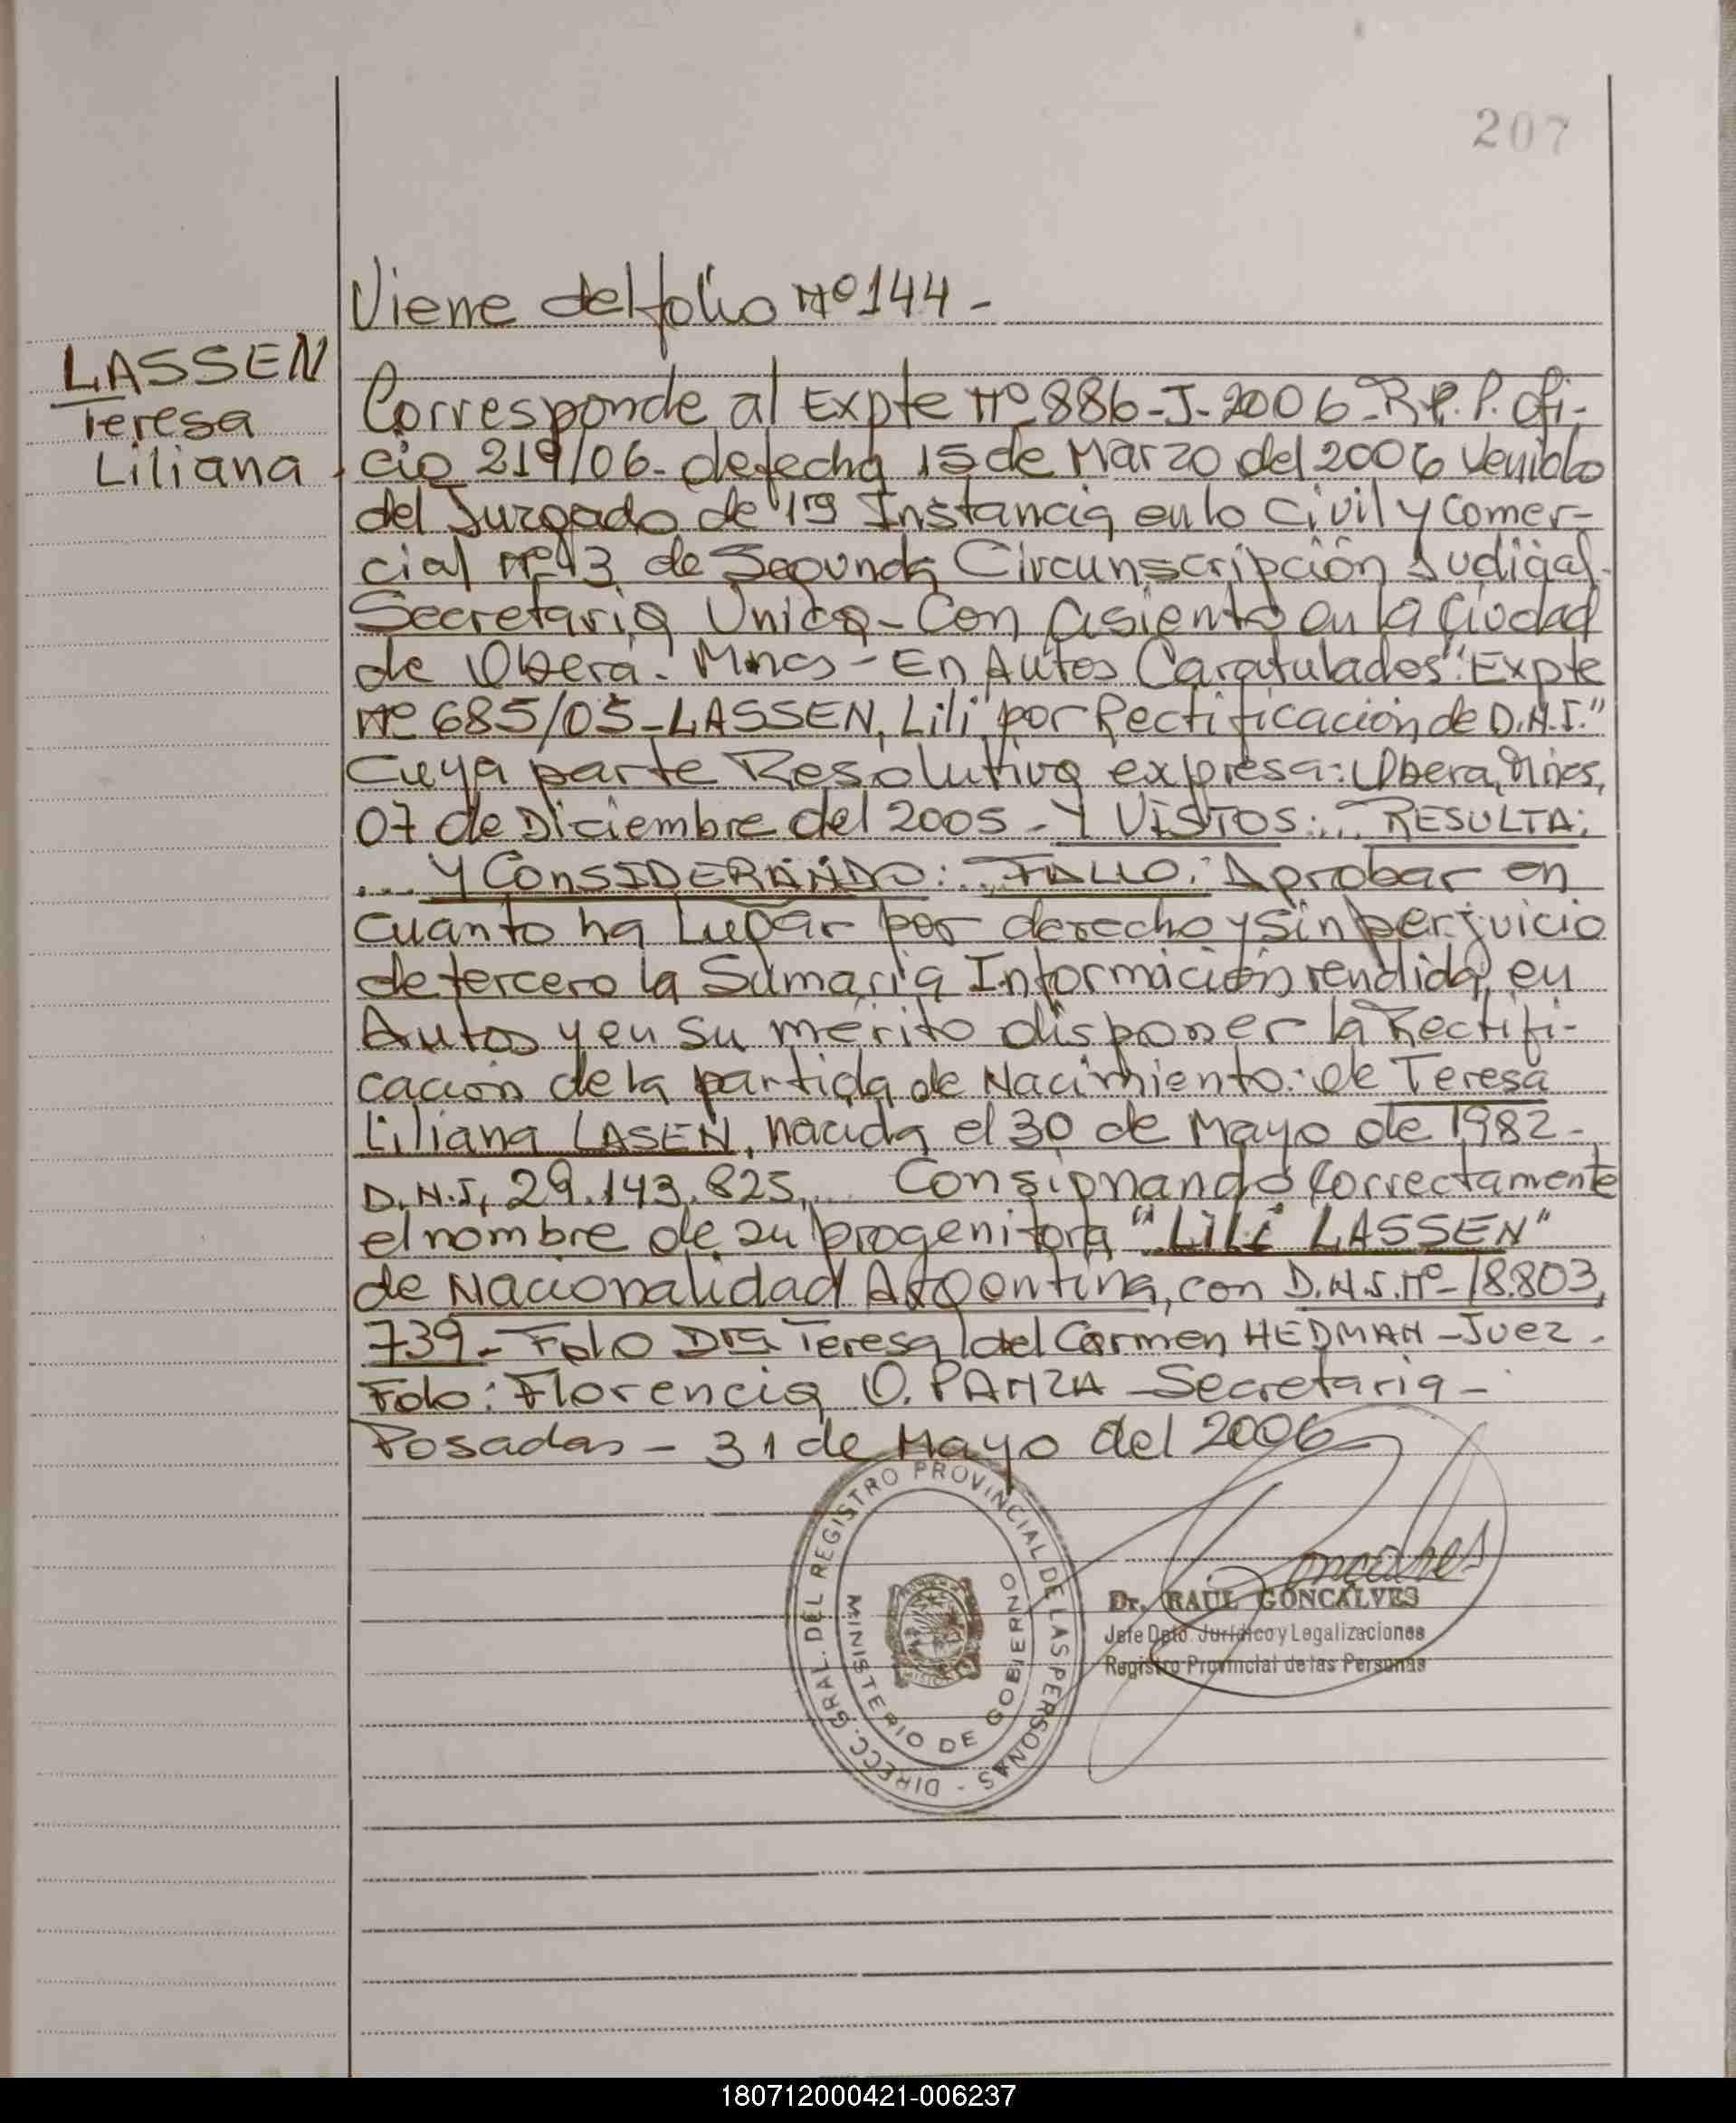 207
Viene del folio Nº 144 -
LASSEN
Teresa
Liliana
Corresponde al Expte Nº 886-J-2006-R.P.P. Ofi-
cio 219/06- defecha 15 de Marzo del 2006 Venido
del Juzgado de 1ra Instancia en lo Civil y Comer-
cial Nº 3 de Segunda Circunscripción Judicial-
Secretaria Unica- Con Asiento en la Ciudad
de Obera- Mnes - En Autos Caratulados "Expte
Nº 685/05-LASSEN, Lili por Rectificación de D.N.I."
Cuya parte Resolutiva expresa: Obera, Mnes,
07 de Diciembre del 2005 - Y VISTOS:... RESULTA:
... Y CONSIDERANDO: ... FALLO: Aprobar en
cuanto ha Lugar por derecho y sin perjuicio
de tercero la Sumaria Información rendida en
Autos y en su merito disponer la Rectifi-
cación de la partida de Nacimiento: de Teresa
Liliana LASEN, nacida el 30 de Mayo de 1982 -
D.N.I, 29.143.825, ... Consignando Correctamente
el nombre de su progenitora "LILI LASSEN"
de Nacionalidad Argentina, con D.N.I. Nº - 18.803,
739 - Fdo Dra Teresa del Carmen HEDMAN - Juez -
Fdo: Florencia O. PANZA - Secretaria -
Posadas - 31 de Mayo del 2006
DIRECC. GRAL. DEL REGISTRO PROVINCIAL DE LAS PERSONAS -
MINISTERIO DE GOBIERNO
Dr. RAUL GONCALVES
Jefe Dpto. Jurídico y Legalizaciones
Registro Provincial de las Personas
180712000421-006237